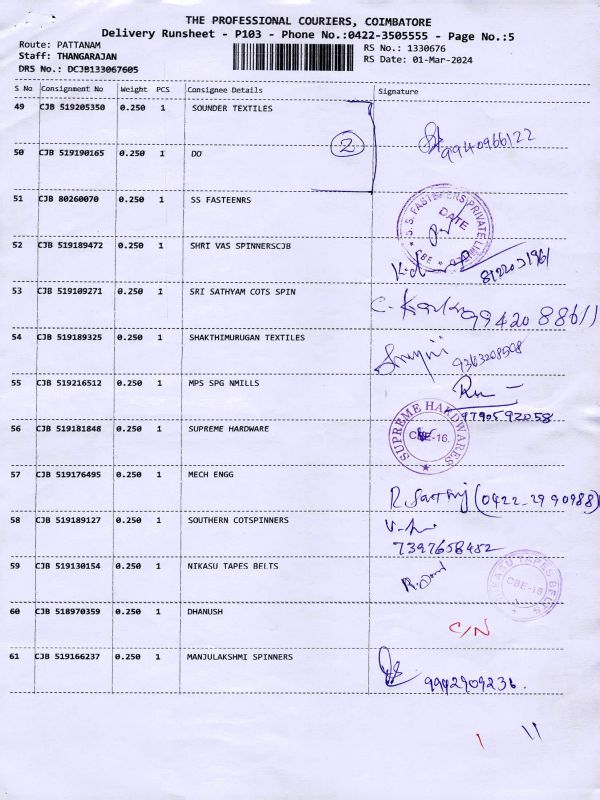 THE PROFESSIONAL COURIERS, COIMBATORE
Delivery Runsheet - P103 - Phone No.:0422-3505555 - Page No.:5
Route: PATTANAM
RS No.: 1330676
Staff: THANGARAJAN
RS Date: 01-Mar-2024
DRS No.: DCJB133067605
S No Consignment No Weight PCS Consignee Details Signature
49 CJB 519205350 0.250 1 SOUNDER TEXTILES
2 9940966122
50 CJB 519190165 0.250 1 DO
51 CJB 80260070 0.250 1 SS FASTEENRS
S.S. FASTENERS PRIVATE LIMITED DATE CBE
52 CJB 519189472 0.250 1 SHRI VAS SPINNERSCJB
53 CJB 519109271 0.250 1 SRI SATHYAM COTS SPIN
9942088611
54 CJB 519189325 0.250 1 SHAKTHIMURUGAN TEXTILES
9363208508
55 CJB 519216512 0.250 1 MPS SPG NMILLS
9790592058
56 CJB 519181848 0.250 1 SUPREME HARDWARE
SUPREME HARDWARES CBE-16.
57 CJB 519176495 0.250 1 MECH ENGG
(0422-2990988)
58 CJB 519189127 0.250 1 SOUTHERN COTSPINNERS
7397658482
59 CJB 519130154 0.250 1 NIKASU TAPES BELTS
NIKASU TAPES BELTS CBE-16
60 CJB 518970359 0.250 1 DHANUSH
C/N
61 CJB 519166237 0.250 1 MANJULAKSHMI SPINNERS
9942909236.
1 11